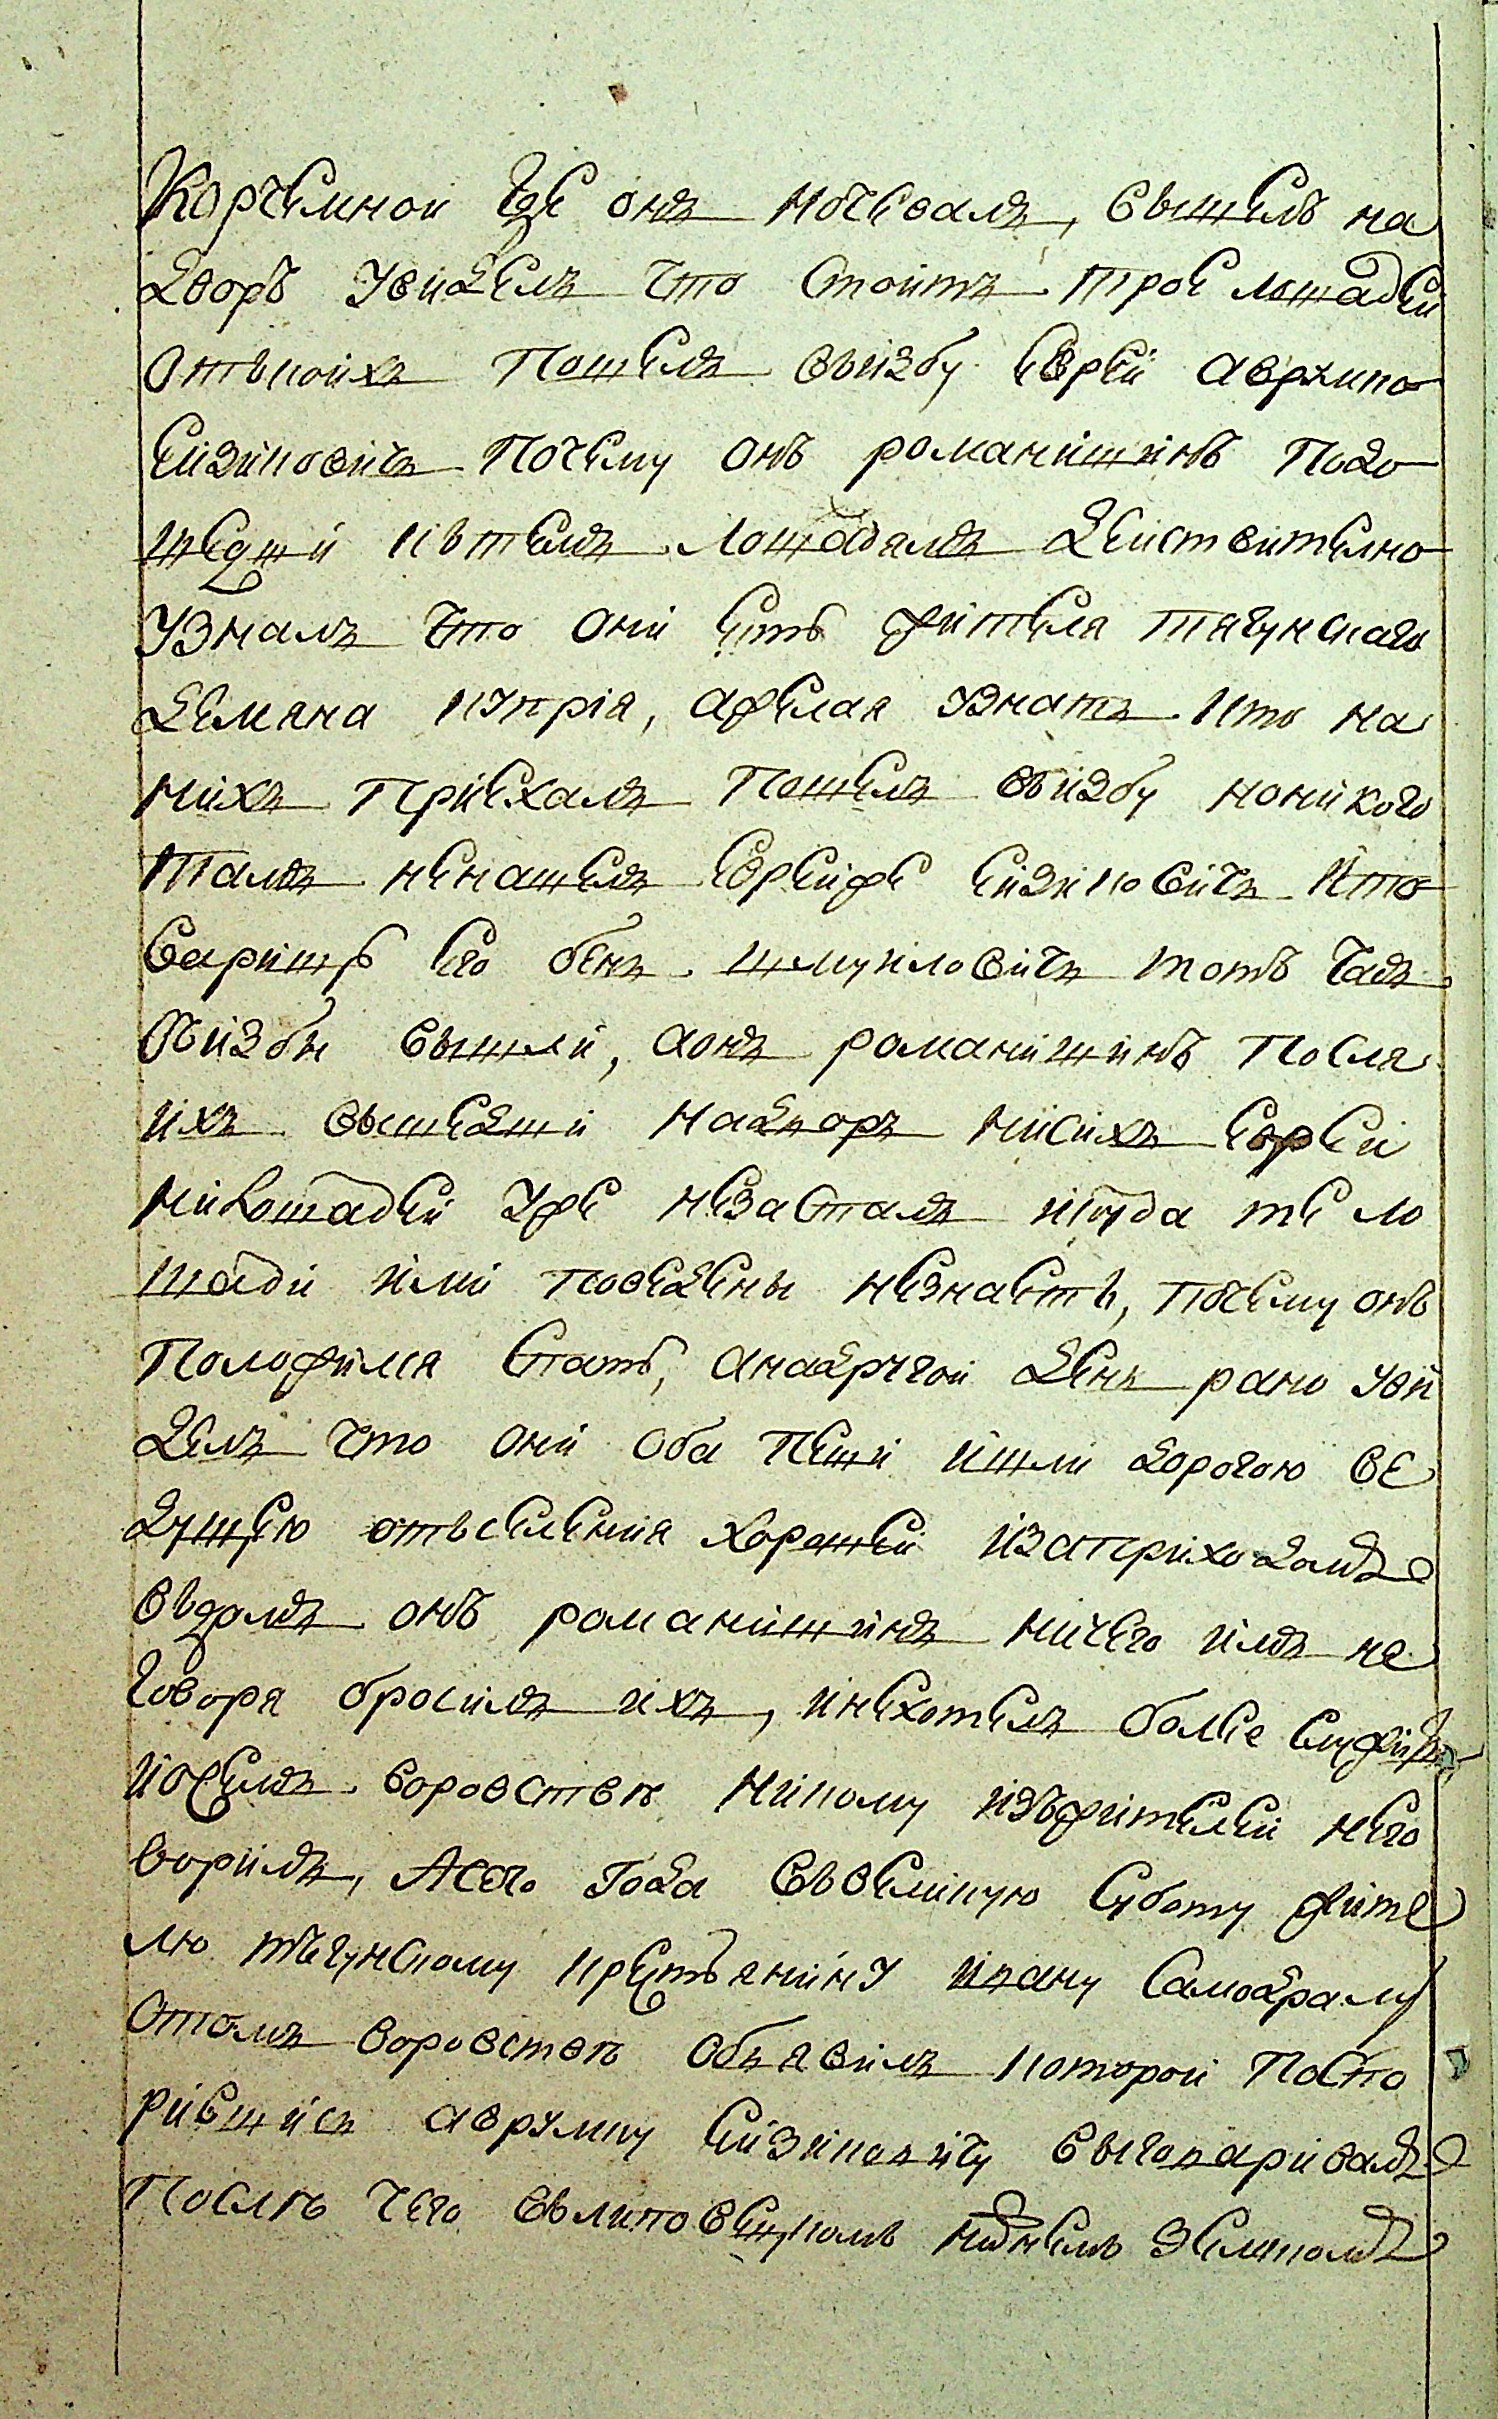 Корчемной где онъ ночевалъ, вышелъ на
дворъ увиделъ что стоитъ трое лошадей
отькоихъ пошелъ вьизбу еврей аврумъ
Ейзиковичъ почему онъ романишинъ подо
шедши кьтемъ лошадямъ действително
узналъ что они есть жителя тягунскаго
Демяна купрія, ажелая узнатъ кто на
нихъ приехалъ пошелъ вьизбу нониково
тамъ ненашелъ еврейже Ейзиковичъ ито
варищъ его бенъ шмуиловичъ тотъ часъ
сьизбы вышли, аонъ романишинъ посля
ихъ вышедши надворъ нисихъ еврей
нилошадей уже незасталъ икуда те ло
шади ими поведены незнаетъ, почему онъ
положился спать, анадругой денъ рано уви
делъ что они оба пеши ишли дорогою ве
дущею отьселения хорошей изаприходомъ
вьдомъ онъ романишинъ ничего имъ не
говоря бросилъ ихъ, инехотелъ более служить
иосемъ воровстве никому изьжителей него
ворилъ, Асего года вьвеликую суботу жите
лю тягунскому крестьянину ивану Самодраму
отомъ воровстве объявилъ которой посто
рившись аврумку Ейзиковичу выговаривалъ
после чего вьлиповецкомъ нижнемъ земскомъ